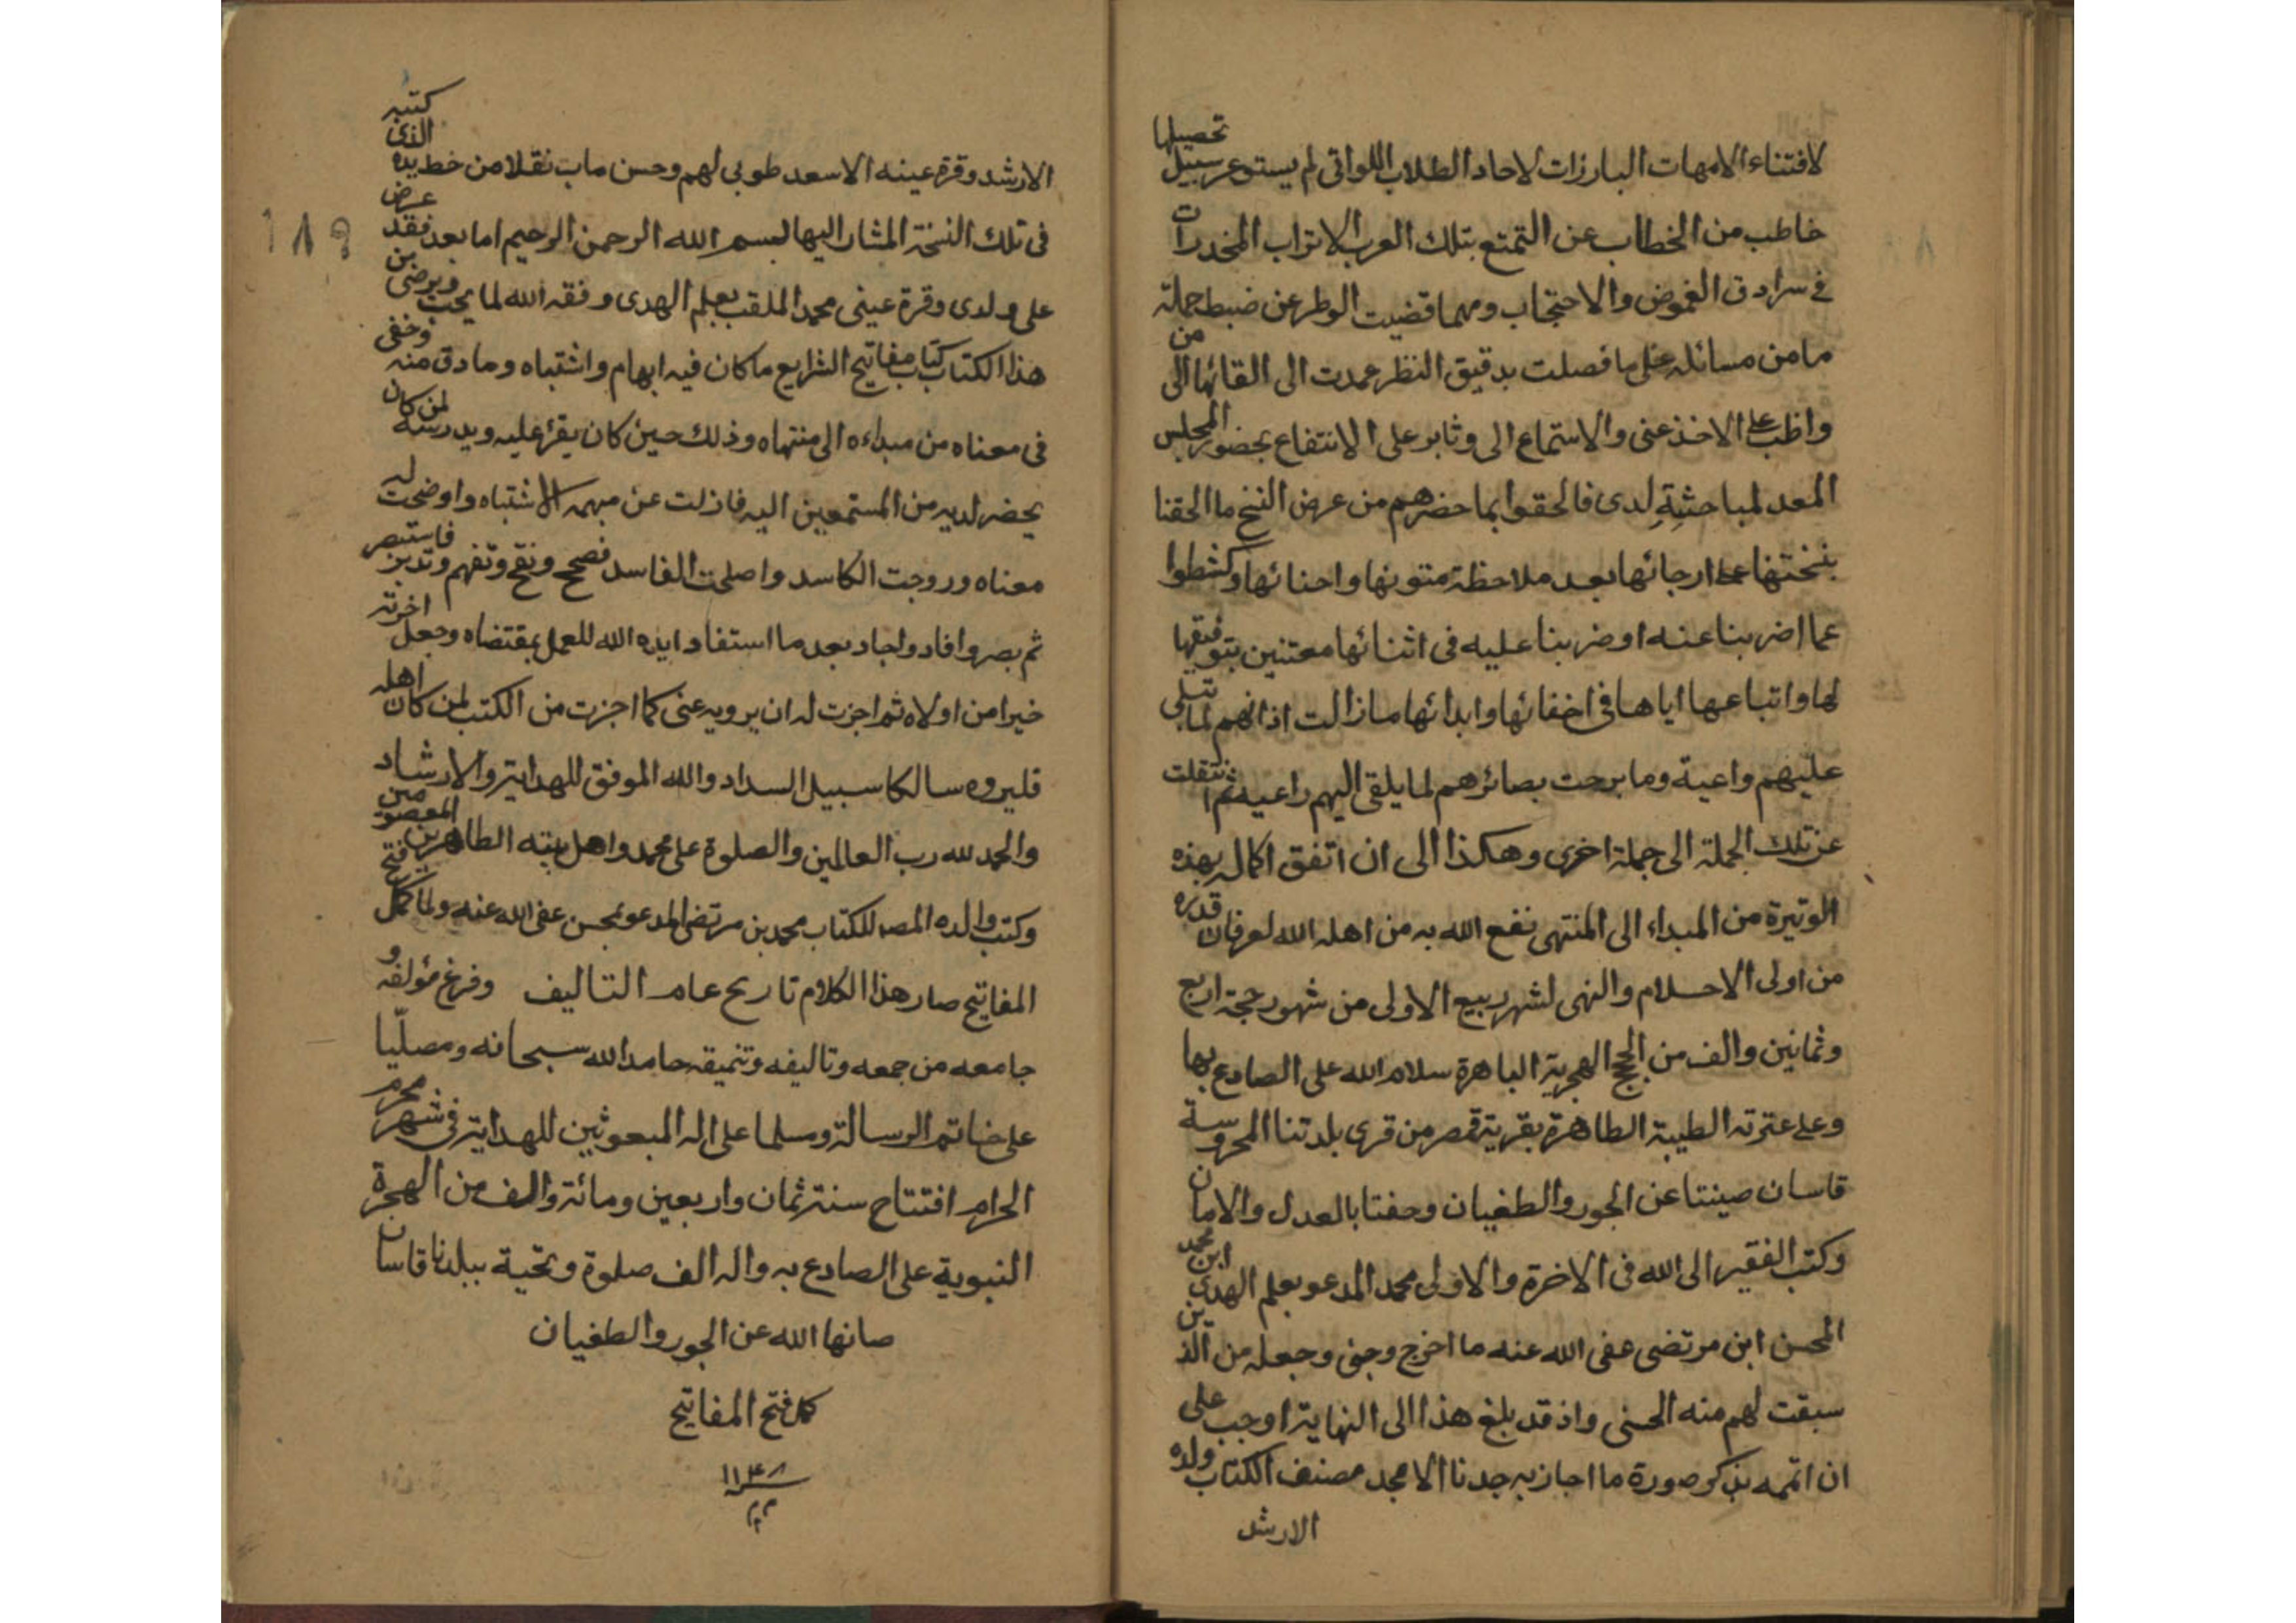 لافتناء الامهات البارزات لاحاد الطلاب اللواتي لم يستوعر سبيل تحصيلها
خاطب من الخطاب عن التمتع بتلك العرب الاتراب المخدرات
في سرادق الغموض والاحتجاب ومهما قضيت الوطر عن ضبط جملة
ما من مسائله على ما فصلت بدقيق النظر عمدت الى القائها الى من
واظب على الاخذ عنى والاستماع الى وثابر على الانتفاع بحضور المجلس
المعد لمباحثيه لدى فالحقوا بما حضرهم من عرض النسخ ما الحقنا
بنسختها على ارجائها بعد ملاحظة متونها واحنائها وكشطوا
عما اضربنا عنه او ضربنا عليه فى اثنائها معتنين بتوفيقها
لها واتباعها اياها فى اخفائها وابدائها ما زالت اذانهم لما تتلى
عليهم واعية وما برحت بصائرهم لما يلقى اليهم راعيه ثم انتقلت
عن تلك الجملة الى جملة اخرى وهكذا الى ان اتفق اكماله بهذه
الوتيرة من المبداء الى المنتهى نفع الله به من اهله الله لعرفان قدره
من اولى الاحلام والنهى لشهر ربيع الاولى من شهور حجة اربع
وثمانين والف من الحجج الهجرية الباهرة سلام الله على الصادع بها
وعلى عترته الطيبة الطاهرة بقرية قمصر من قرى بلدتنا المحروسة
قاسان صينتا عن الجور والطغيان وحفتا بالعدل والامان
وكتب الفقير الى الله فى الاخرة والاولى محمد المدعو بعلم الهدى ابن محمد
المحسن ابن مرتضى عفى الله عنه ما اخرج وجنى وجعله من الذين
سبقت لهم منه الحسنى واذ قد بلغ هذا الى النهاية اوجب على
ان اتممه بذكر صورة ما اجاز به جدنا الامجد مصنف الكتاب ولده
الارشد
الارشد وقرة عينه الاسعد طوبى لهم وحسن ماب نقلا من خط يده الذى كتبه
فى تلك النسخة المشار اليها بسم الله الرحمن الرحيم اما بعد فقد عرض
على ولدى وقرة عينى محمد الملقب بعلم الهدى وفقه الله لما يحب ويرضى من
هذا الكتاب كتاب مفاتيح الشرايع ما كان فيه ابهام واشتباه وما دق منه وخفى
فى معناه من مبداءه الى منتهاه وذلك حين كان يقرأ عليه ويدرسه لمن كان
يحضر لديه من المستمعين اليه فازلت عن مبهمه الاشتباه واوضحت له
معناه وروجت الكاسد واصلحت الفاسد فصحح ونقح وتفهم وتدبر فاستبصر
ثم بصر وافاد واجاد بعد ما استفاد ايده الله للعمل بمقتضاه وجعل اخرته
خيرا من اولاه ثم اجزت له ان يرويه عنى كما اجزت من الكتب لمن كان اهله
فليروه سالكا سبيل السداد والله الموفق للهداية والارشاد
والحمد لله رب العالمين والصلوة على محمد واهل بيته الطاهرين المعصومين
وكتب والده المصـ للكتاب محمد بن مرتضى المدعو بمحسن عفى الله عنه ولما كمل فتح
المفاتيح صار هذا الكلام تاريح عام التاليف وفرغ مؤلفه و
جامعه من جمعه وتاليفه وتنميقه حامدا لله سبحانه ومصلّيا
على خاتم الرسالة ومسلما على اله المبعوثين للهداية فى شهر محرم
الحرام افتتاح سنة ثمان واربعين ومائة والف من الهجرة
النبوية على الصادع به واله الف صلوة وتحية ببلدنا قاسان
صانها الله عن الجور والطغيان
كمل فتح المفاتيح
١١٤٨
١٨٩